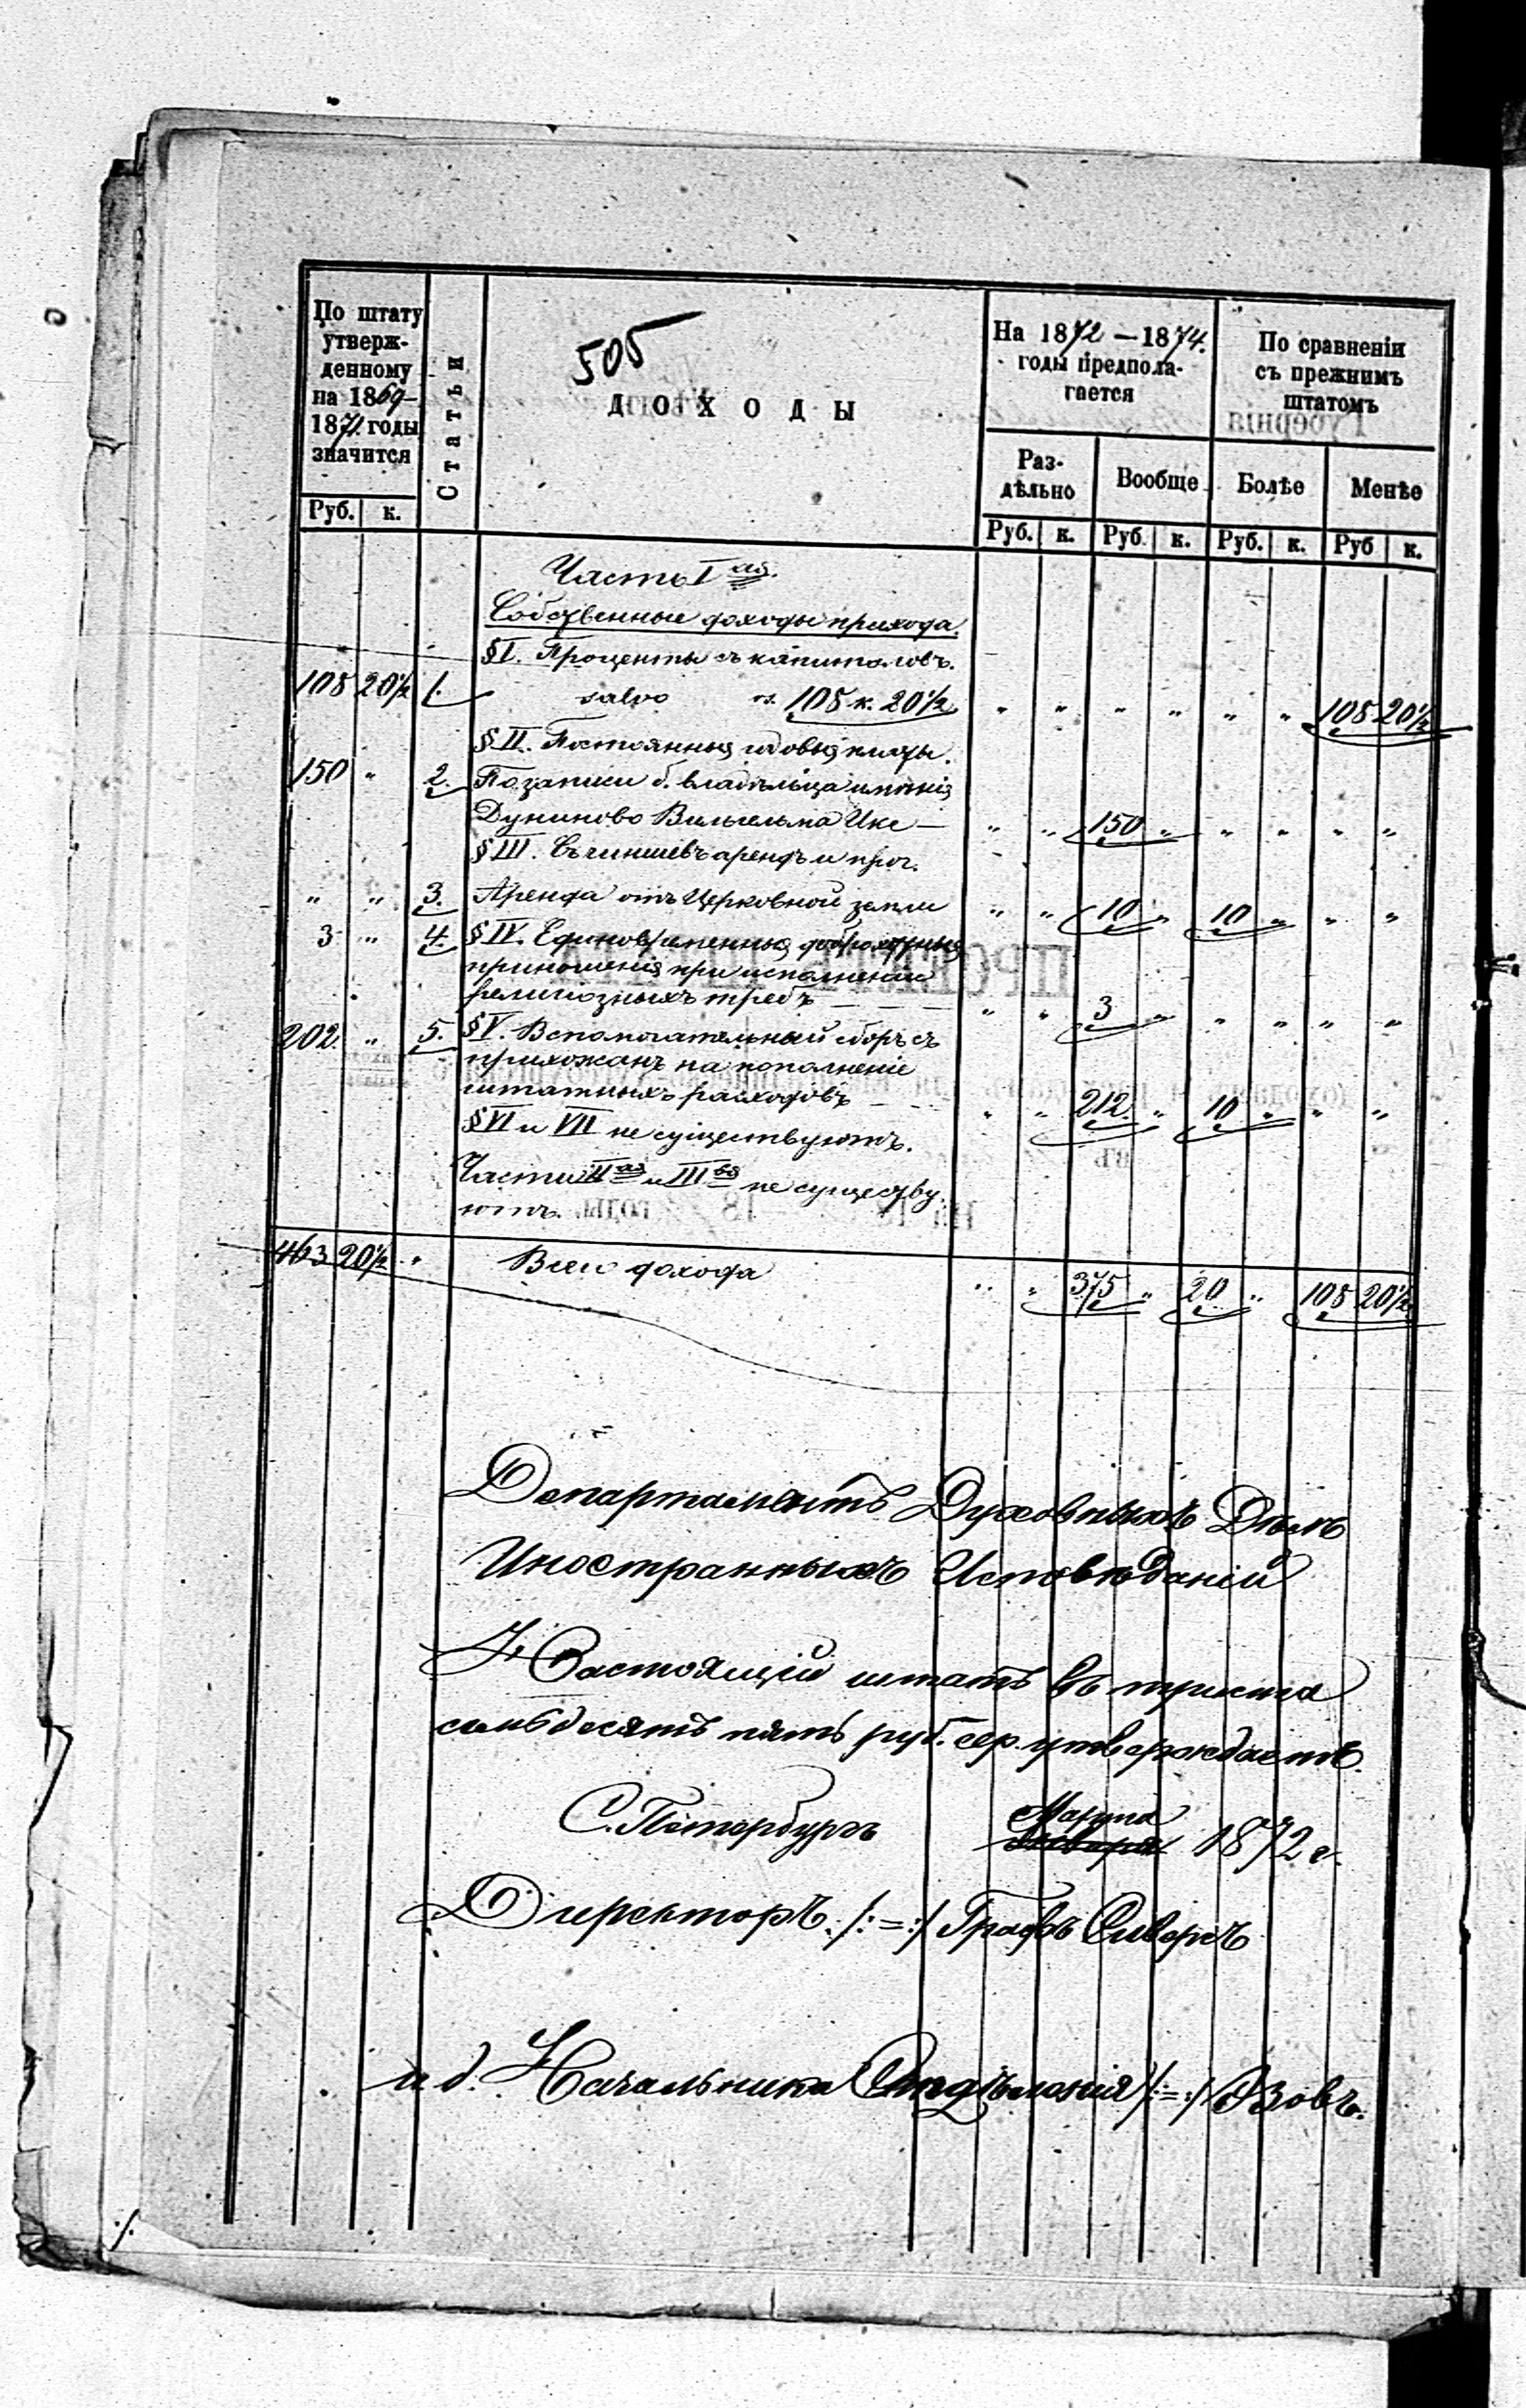 По штату утверж-
денному
на 1869-
1871. годы
значится
Руб. к.
Статьи
505
ДОХОДЫ
На 1872-1874.
годы предпола-
гается
Раз-
дѣльно
Вообще
Руб. к. Руб. к.
По сравненіи
съ прежнимъ
штатомъ
Болѣе Менѣе
Руб. к. Руб к.
Часть Iая.
Собственные доходы прихода.
§ I. Проценты съ капиталовъ.
108 20½ 1. salvo rs. 108 к. 20½ " " " " " " 108 20½
§ II. Постоянныя годовыя
150 " 2. По записи б. владѣльца имѣнія
Дуниново ВильгельмаИке — " " 150 " " " " "
§ III. Съ чиншевъ арендъ и проч.
" " 3. Аренда отъ Церковной земли " " 10 " 10 " " "
3 " 4. § IV. Единовременныя доброхотныя
приношенія при исполненіи
религіозныхъ требъ " " 3 " " " " "
202. " 5. § V. Вспомогательный сборъ съ
прихожанъ на пополненіе
штатныхъ расходовъ " " 212. " 10 " " "
§ VI и VII не существуютъ.
Части IIая и IIIья не существу-
ютъ.
463 20½ " Всего дохода " " 375 " 20 " 108 20½
Департаментъ Духовныхъ Дѣлъ
Иностранныхъ Исповѣданій
Настоящій штатъ въ триста
семьдесятъ пять руб. сер. утверждаетъ.
С. Петербургъ Марта
Января 1872 г.
Директоръ: /:=:/ Графъ Сиверсъ
и д. Начальника Отдѣленія /:=:/ Взовъ.